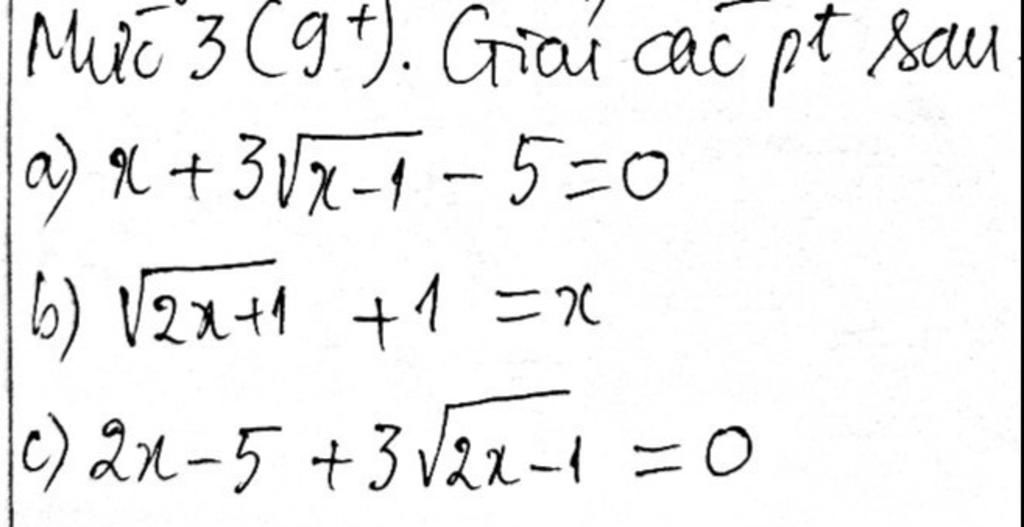 Mức 3 (9+). Giải các pt sau
a) x + 3√(x-1) - 5 = 0
b) √(2x+1) + 1 = x
c) 2x - 5 + 3√(2x-1) = 0